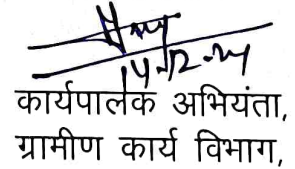 14-12-24
कार्यपालक अभियंता,
ग्रामीण कार्य विभाग,